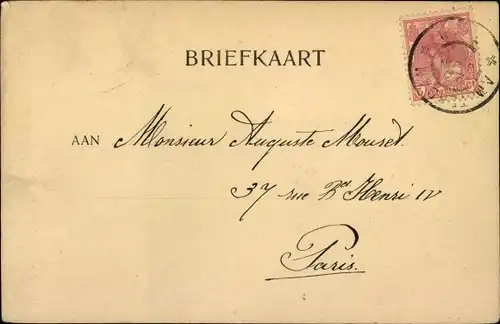 BRIEFKAART
AAN Monsieur Auguste Mouret.
37 rue Bd Henri IV
Paris.